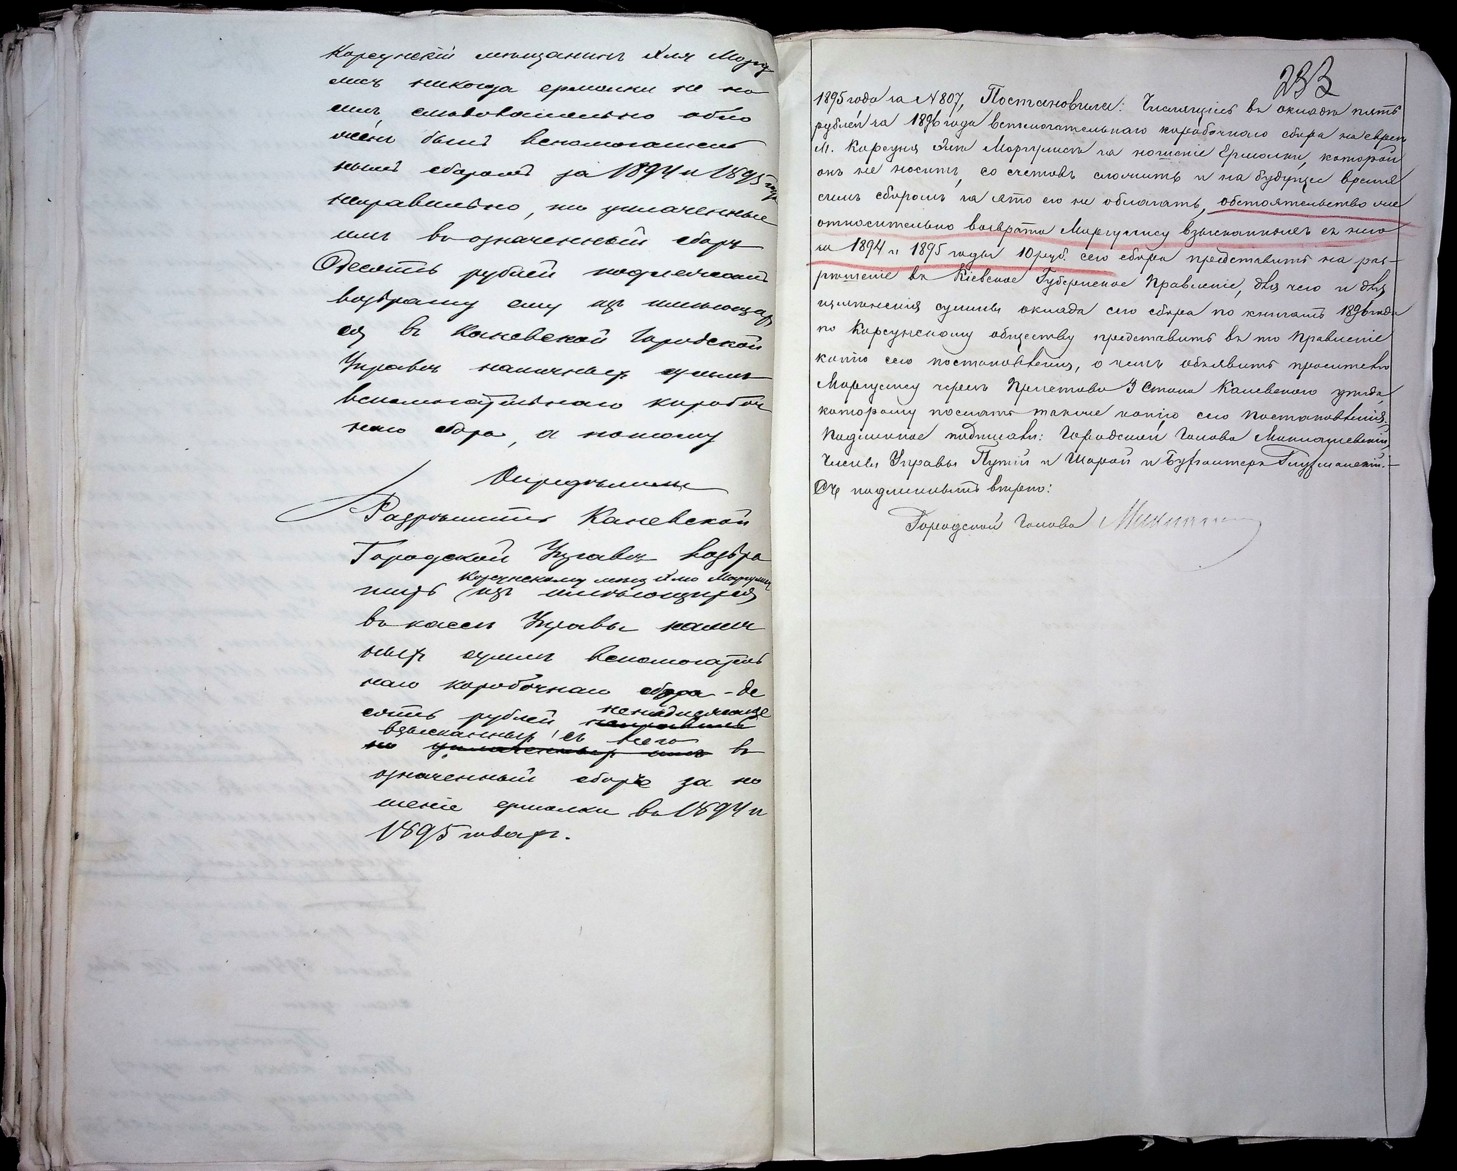 Корсунскій мѣщанинъ Яля Моргу
лисъ никогда ермолки не но
силъ, слѣдовательно обло
женъ былъ вспомогатель
нымъ сборомъ за 1894 и 1895 года
неправильно, но уплаченные
имъ въ означенный сборъ
десять рублей подлежатъ
возврату ему изъ имѣющих
ся въ Каневской Городской
Управѣ наличныхъ суммъ
вспомогательнаго коробоч
наго сбора, а потому
Опредѣлили
Разрѣшить Каневской
Городской Управѣ возвра
Корсунскому мѣщ. Ялю Моргулису
тить изъ имѣющихся
въ кассѣ Управы налич
ныхъ суммъ вспомогатель
наго коробочнаго сбора - де
сять рублей неправиль
взысканныхъ съ него
но уплаченныхъ имъ въ
означенный сборъ за но
шеніе ермолки въ 1894 и
1895 годахъ.
233
1895 года за № 807, Постановила: Числящіеся въ окладѣ пять
рублей за 1896 года вспомогательнаго коробочнаго сбора на евреѣ
М. Корсуня Ялѣ Моргулисѣ за ношеніе Ермолки, которой
онъ не носитъ, со счетовъ сложить и на будущее время
симъ сборомъ за это его не облагать, обстоятельство же
относительно возврата Моргулису взысканныхъ съ него
за 1894 и 1895 годы 10 руб. сего сбора представить на раз-
рѣшеніе въ Кіевское Губернское Правленіе, для чего и для
измѣненія суммы оклада сего сбора по книгамъ 1896 года
по Корсунскому обществу представить въ то Правленіе
копію сего постановленія, о чемъ объявить просителю
Моргулису черезъ Пристава 3 Стана Каневского уѣзда
которому послать также копію сего постановленія.
Подлинное подписали: Городской Голова Миклашевскій,
Члены Управы Путій и Шарай и Бухгалтеръ Глузманскій.-
Съ подлиннымъ вѣрно:
Городской Голова